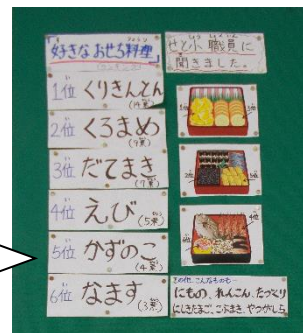 好きなおせち料理
せと小職員に
聞きました。
1位 くりきんとん
2位 くろまめ
3位 だてまき
4位 えび
(5票)
5位 かずのこ
(4票)
6位 なます
(3票)
その他、こんなものも…
にもの、れんこん、たづくり
にしきたまご、こぶまき、やつがしら